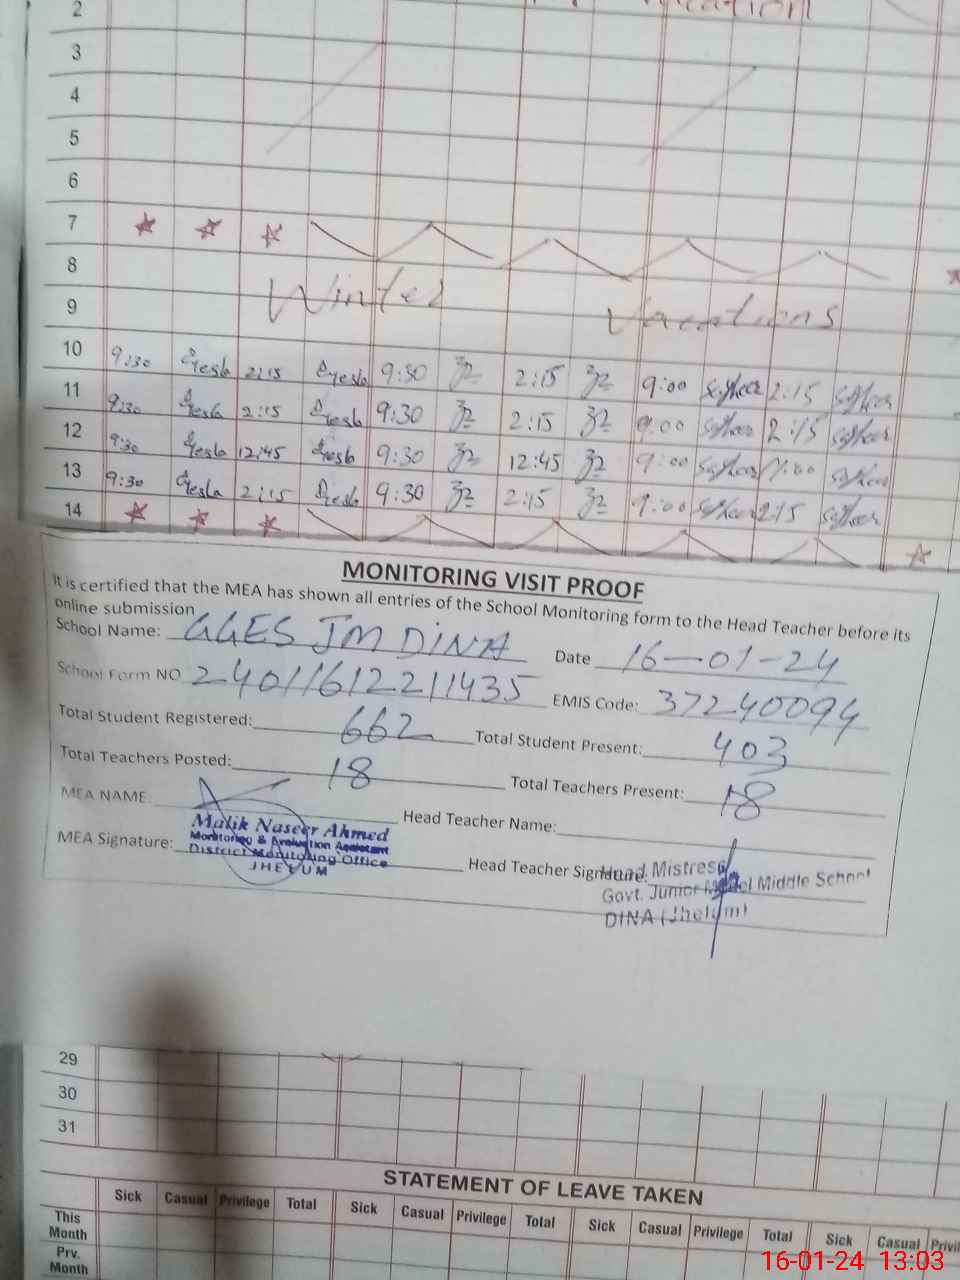 2
3
4
5
6
7
8
Winter Vacations
9
10 9:30 2:15 9:30 2:15 9:00 2:15
11 9:30 2:15 9:30 2:15 9:00 2:15
12 9:30 12:45 9:30 12:45 9:00
13 9:30 2:15 9:30 2:15 9:00 2:15
14
MONITORING VISIT PROOF
It is certified that the MEA has shown all entries of the School Monitoring form to the Head Teacher before its
online submission
School Name: GGES JM DINA Date 16-01-24
School Form NO 24011612211435 EMIS Code: 37240094
Total Student Registered: 662 Total Student Present: 403
Total Teachers Posted: 18 Total Teachers Present: 18
MEA NAME: Head Teacher Name:
Malik Naseer Ahmed
Monitoring & Evaluation Assistant
District Monitoring Office
JHELUM
MEA Signature: Head Teacher Signature:
Head Mistress
Govt. Junior Model Middle School
DINA (Jhelum)
29
30
31
STATEMENT OF LEAVE TAKEN
Sick Casual Privilege Total Sick Casual Privilege Total Sick Casual Privilege Total Sick Casual
This
Month
Prv.
Month
16-01-24 13:03